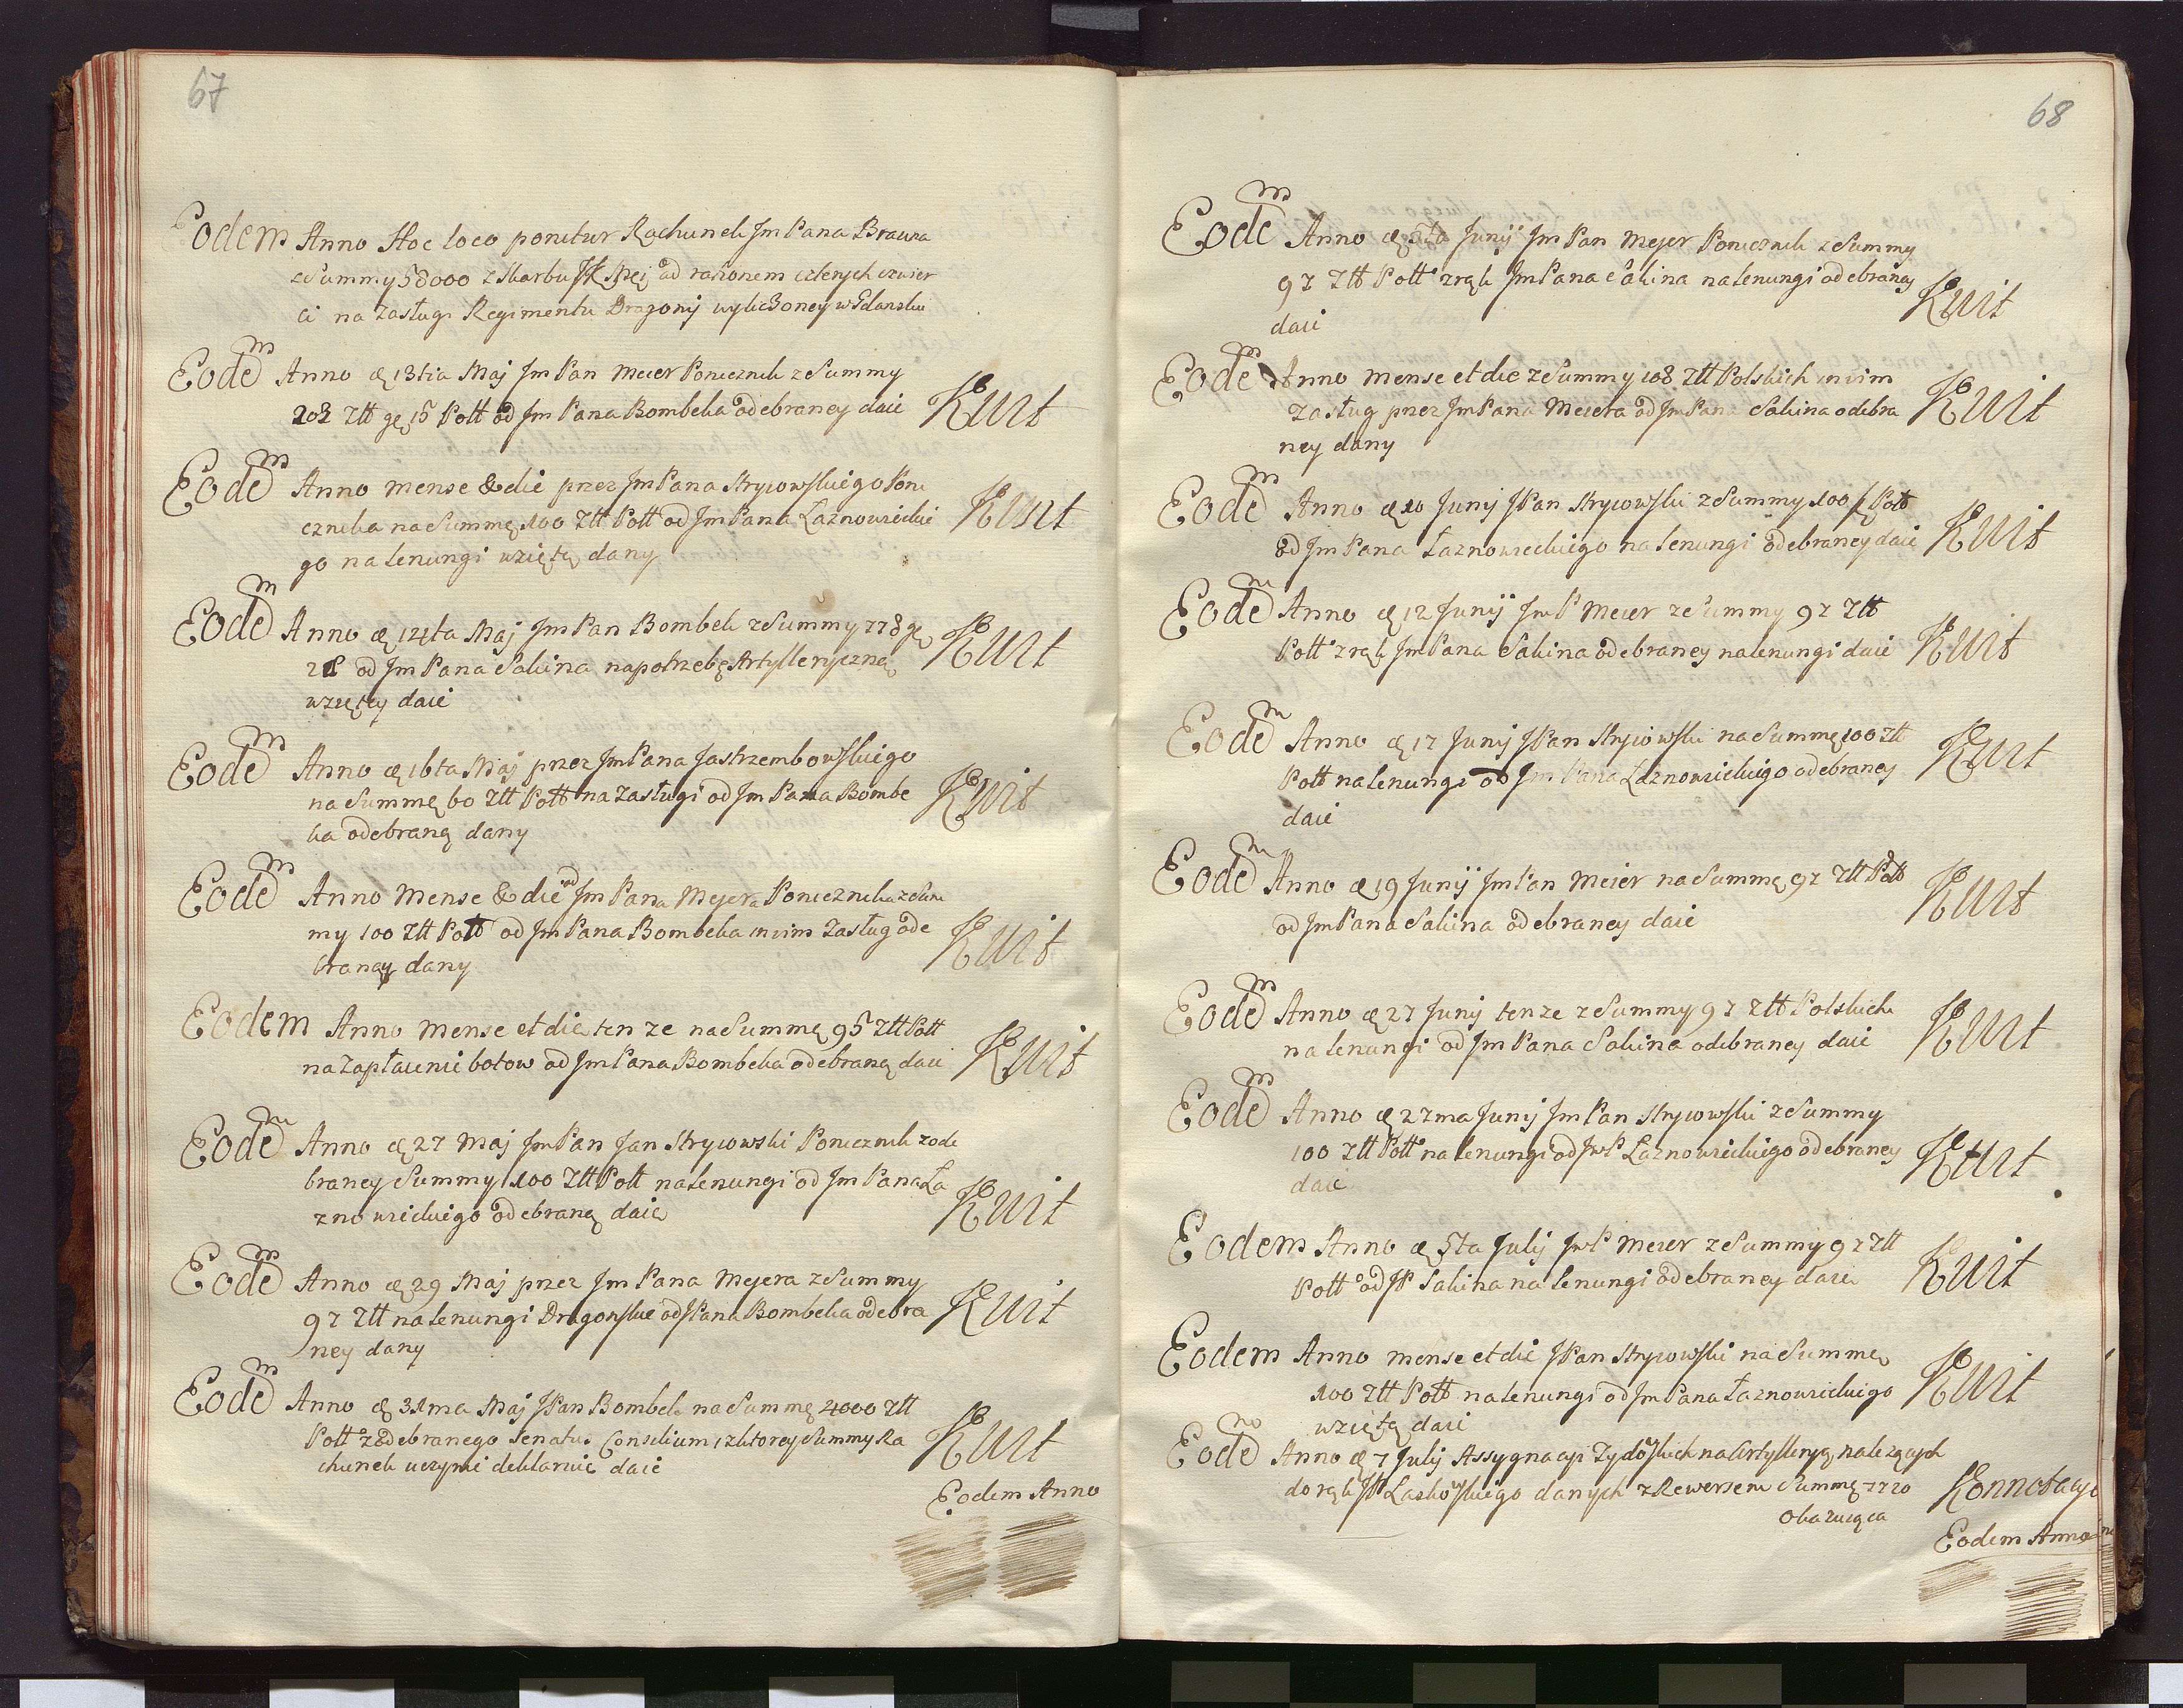 67
Eodem Anno Hoc loco ponitur Rachunek Jm Pana Brauna
z Summy 58000 z Skarbu ad rationem czterych czwier
ci na zasługi Regimentu Dragonij wyliczoney w Gdansku
Eodem Anno 13tia Maj Jm Pan Meier Porucznik z Summy
202 Ztt gę 15 Poll od Jm Pana Bombeka odebraney daie Kwit
Eodem Anno mense & die przez Jm Pana Strycowskiego Poru
cznika na Summę 100 Ztt Poll od Jm Pana Łaznowieckie Kwit
go na lenungi wziętą dany
Eodem Anno 14ta Maj Jm Pan Bombek z Summy 778 gę
28 od Jm Pana Sakina na potrzebę Artylleryczną Kwit
wziętey daie
Eodem Anno 16ta Maj przez Jm Pana Jastrzembowskiego
na Summę 60 Ztt Poll na zasługi od Jm Pana Bombe Kwit
ka odebraną dany
Eodem Anno Mense & die od Jm Pana Meyera Porucznika z Sum
my 100 Ztt Poll od Jm Pana Bombeka in vim Zasług ode Kwit
braney dany
Eodem Anno Mense et die ten ze na Summę 95 Ztt Poll
na zapłacenie botow od Jm Pana Bombeka odebraną daie Kwit
Eodem Anno 27 Maj Jm Pan Jan Strycowski Porucznik z ode
braney Summy 100 Ztt Poll na lenungi od Jm Pana Ła
znowieckiego odebraną daie Kwit
Eodem Anno 29 Maj przez Jm Pana Meyera z Summy
97 Ztt na lenungi Dragonskie od JPana Bombeka odebra Kwit
ney dany
Eodem Anno 31ma Maj JPan Bombek na Summę 4000 Ztt
Poll z odebranego Senatus Consilium z ktorey Summy Ra Kwit
chunek uczynic deklaruie daie
Eodem Anno
68
Eodem Anno 5ta Junij Jm Pan Meyer Porucznik z Summy
97 Ztt Poll z rąk Jm Pana Sakina na lenungi odebraney Kwit
daie
Eodem Anno mense et die z Summy 108 Ztt Polskich in vim
zasług przez Jm Pana Meiera od Jm Pana Sakina odebra Kwit
ney dany
Eodem Anno 10 Junij JPan Strycowski z Summy 100 Poll
od Jm Pana Łaznowieckiego na lenungi odebraney daie Kwit
Eodem Anno 12 Junij Jm P Meier z Summy 97 Ztt
Poll z rąk Jm Pana Sakina odebraney na lenungi daie Kwit
Eodem Anno 17 Junij JPan Strycowski na Summę 100 Ztt
Poll na lenungi od Jm Pana Łaznowieckiego odebraney Kwit
daie
Eodem Anno 19 Junij Jm Pan Meier na Summę 97 Ztt Poll
od Jm Pana Sakina odebraney daie Kwit
Eodem Anno 27 Junij ten ze z Summy 97 Ztt Polskich
na lenungi od Jm Pana Sakina odebraney daie Kwit
Eodem Anno 27ma Junij Jm Pan Strycowski z Summy
100 Ztt Poll na lenungi od JmP Łaznowieckiego odebraney Kwit
daie
Eodem Anno 5ta Julij JmP Meier z Summy 97 Ztt
Poll od JP Sakina na lenungi odebraney daie Kwit
Eodem Anno mense et die JPan Strycowski na Summę
100 Ztt Poll na lenungi od Jm Pana Łaznowieckiego Kwit
wziętą daie
Eodem Anno 7 Julij Assygnacyi Zydowskich na Artylleryą nalezących
do rąk JP Laskowskiego danych z Rewersem Summę 7720 Konnotacya
okazuiąca
Eodem Anno